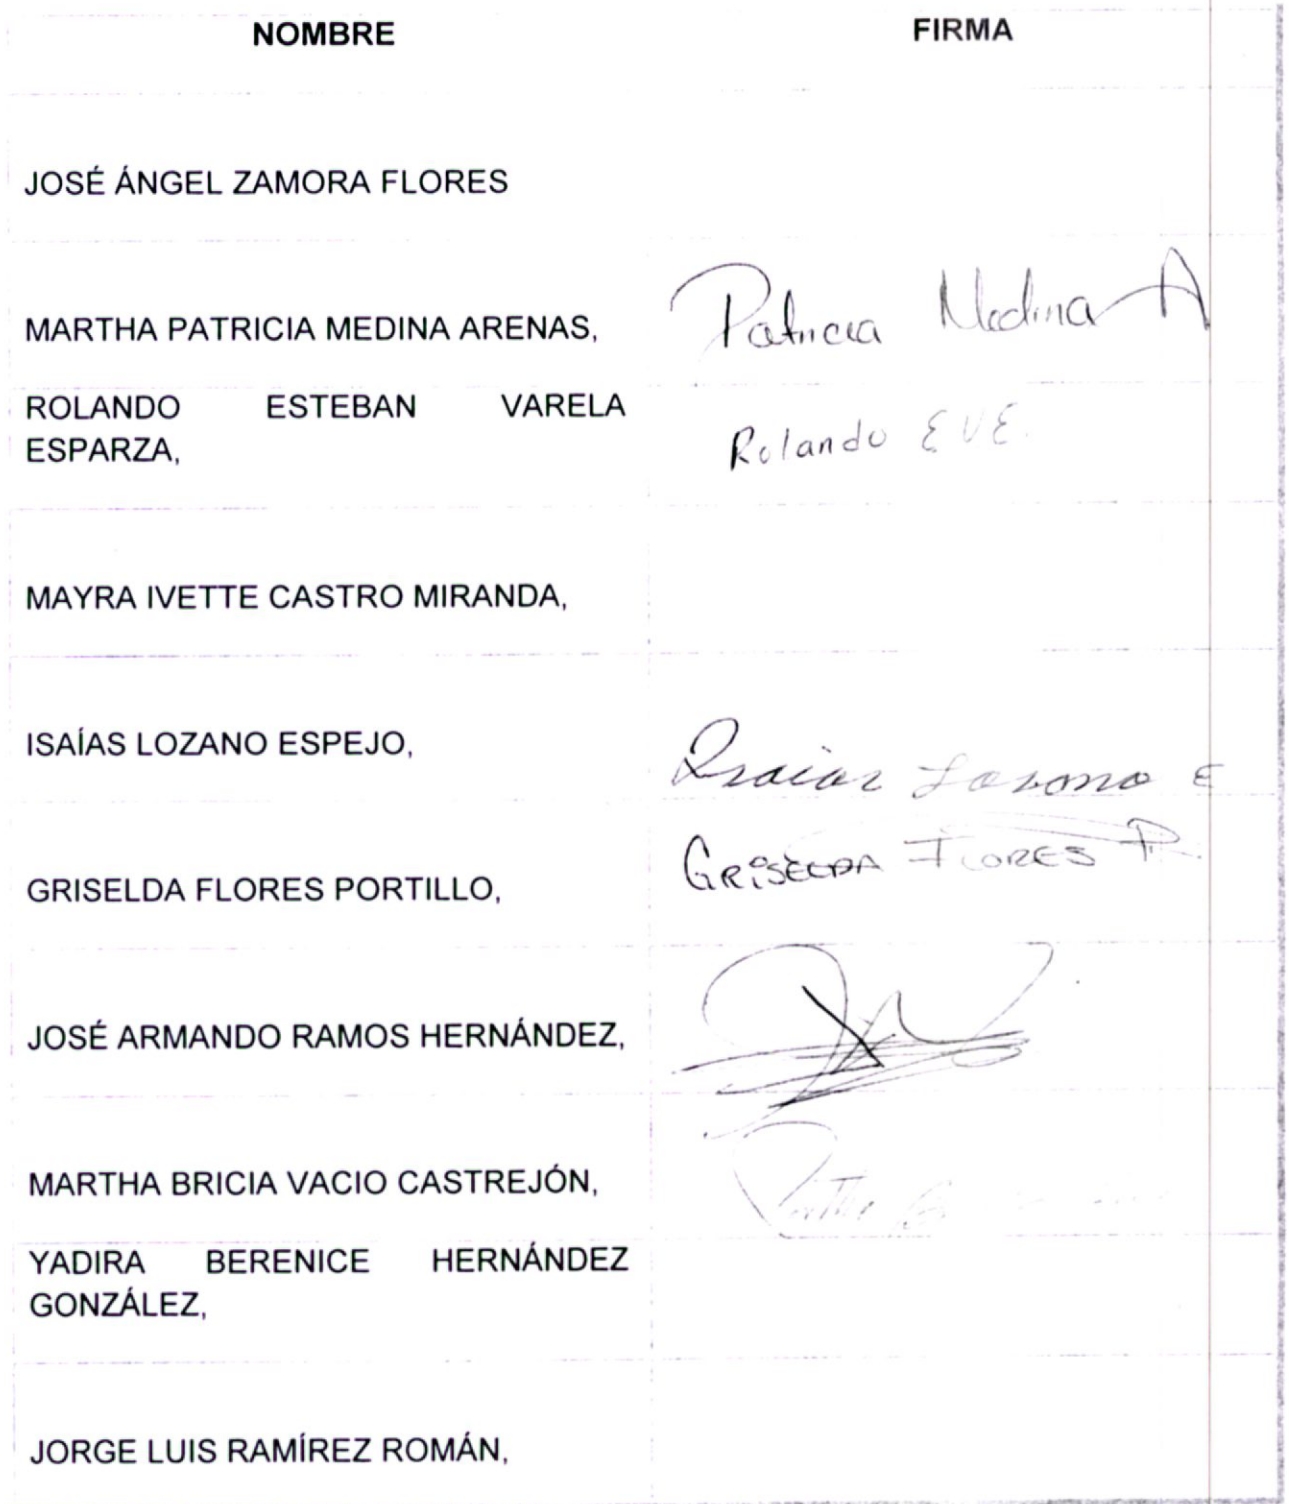 NOMBRE FIRMA
JOSÉ ÁNGEL ZAMORA FLORES
MARTHA PATRICIA MEDINA ARENAS, Patricia Medina A
ROLANDO ESTEBAN VARELA Rolando E V E.
ESPARZA,
MAYRA IVETTE CASTRO MIRANDA,
ISAÍAS LOZANO ESPEJO, Isaias Lozano E
GRISELDA FLORES PORTILLO, GRISELDA FLORES P.
JOSÉ ARMANDO RAMOS HERNÁNDEZ,
MARTHA BRICIA VACIO CASTREJÓN,
YADIRA BERENICE HERNÁNDEZ
GONZÁLEZ,
JORGE LUIS RAMÍREZ ROMÁN,